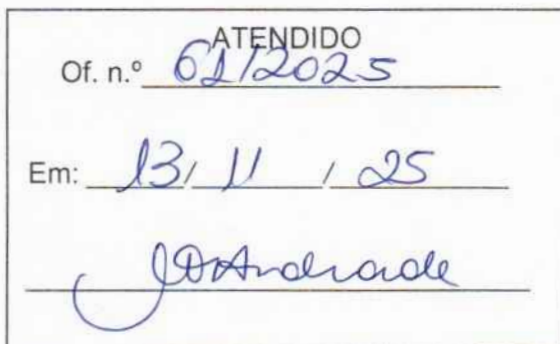 ATENDIDO
Of. n.º 61/2025
Em: 13/ 11 / 25
Andrade